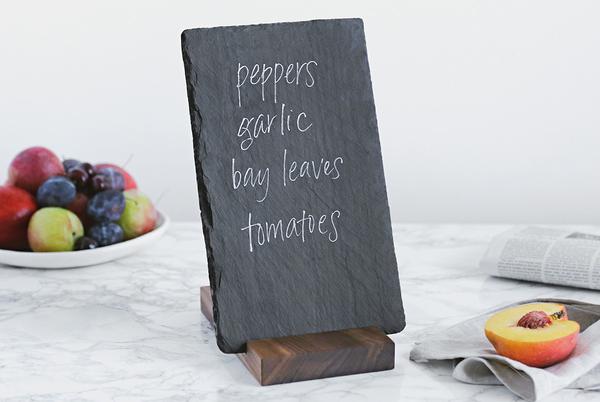 peppers
garlic
bay leaves
tomatoes